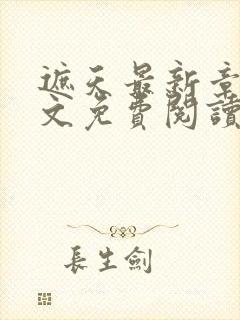 遮天最新章
文免費閱讀
長生劍